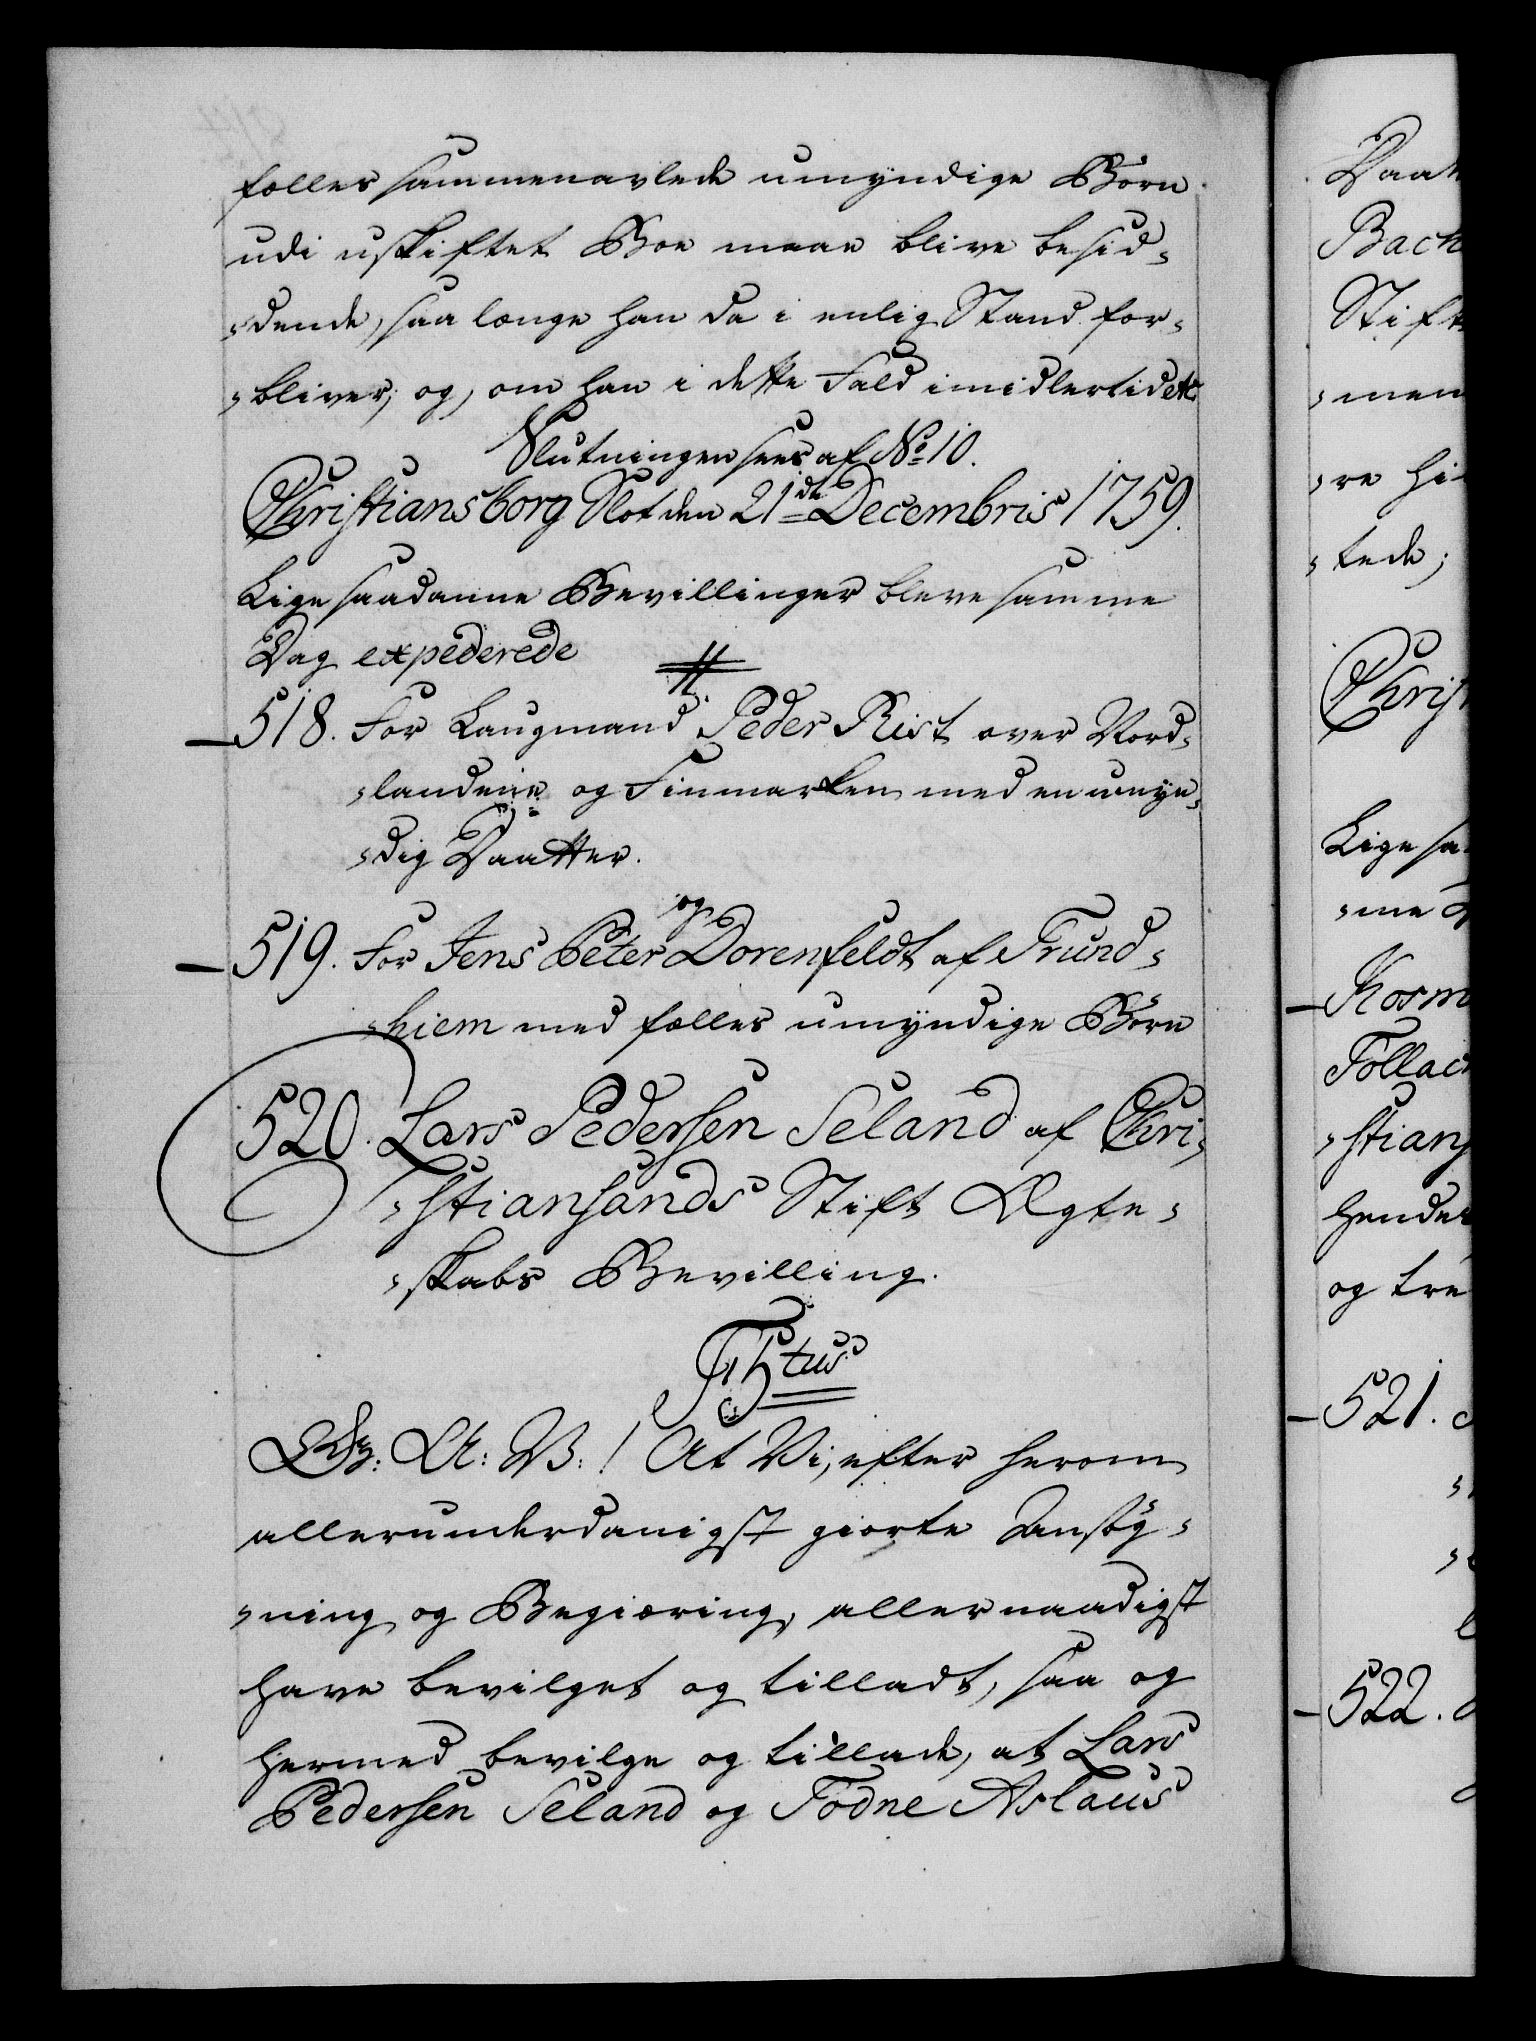 fælles sammenavlede umyndige Børn
udi uskiftet Boe maae blive besid-
-dende, saa længe han da i enlig Stand for-
-bliver; og, om han i dette Fald imidlertid etc
Slutningen sees af No 10.
Christiansborg Slot den 21de Decembris 1759.
Lige saadanne Bevillinger bleve samme
Dag expederede
518. For Laugmand Peder Rist over Nord-
-landene og Finmarken med en umyn-
-dig Daatter.
og
519. For Jens Peter Dorenfeldt af Trund-
-hiem med fælles umyndige Børn
520. Lars Pedersen Seland af Chri-
-stiansands Stift Ægte-
-skabs Bevilling.
F 5tus
Gr: A: V: ! At Vi, efter herom
allerunderdanigst giorte Ansøg-
-ning og Begiæring, allernaadigst
have bevilget og tilladt, saa og
hermed bevilge og tillade, at Lars
Pedersen Seland og Todne Aslaus
Bach
Stift
-men
-re hi
-tede;
Christ
Lige sa
-me
Stian
og tre
521.
522.